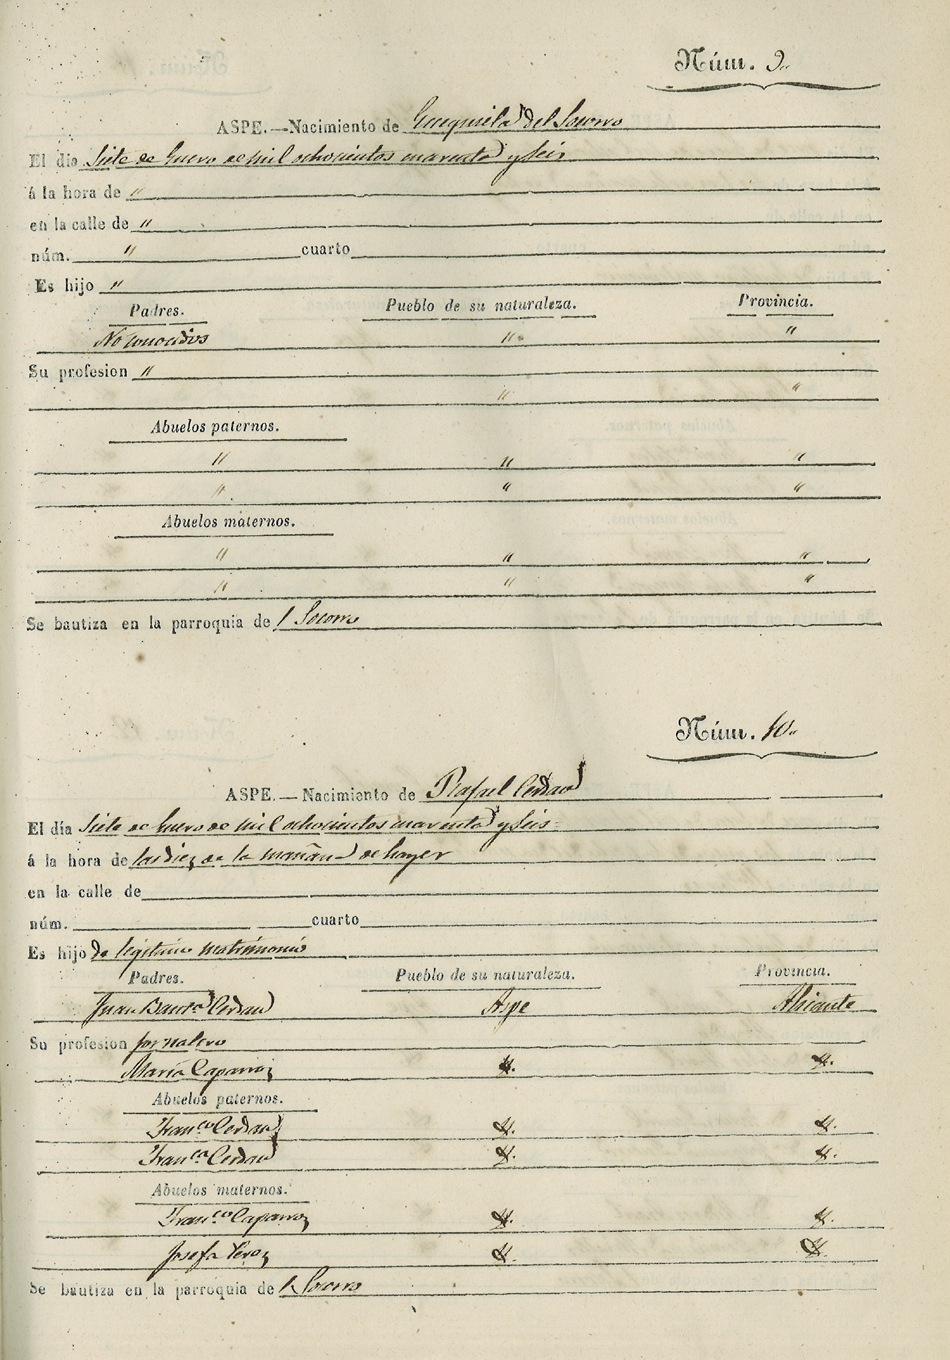 Núm. 9.
ASPE.—Nacimiento de del Socorro
El día Siete de Enero de mil ochocientos cuarenta y seis
á la hora de "
en la calle de "
núm. " cuarto
Es hijo "
Padres. Pueblo de su naturaleza. Provincia.
No conocidos " "
Su profesion "
" "
Abuelos paternos.
" " "
" " "
Abuelos maternos.
" " "
" " "
Se bautiza en la parroquia de l Socorro
Núm. 10.
ASPE.—Nacimiento de Rafael Cerdan
El día Siete de Enero de mil ochocientos cuarenta y seis
á la hora de las diez de la mañana de hayer
en la calle de
núm. cuarto
Es hijo de legitimo matrimonio
Padres. Pueblo de su naturaleza. Provincia.
Juan Bauta Cerdan Aspe Alicante
Su profesion jornalero
Maria Caparroz Y. Y.
Abuelos paternos.
Franco Cerdan Y. Y.
Franca Cerdan Y. Y.
Abuelos maternos.
Franco Caparroz Y. Y.
Josefa Y. Y.
Se bautiza en la parroquia de l Socorro